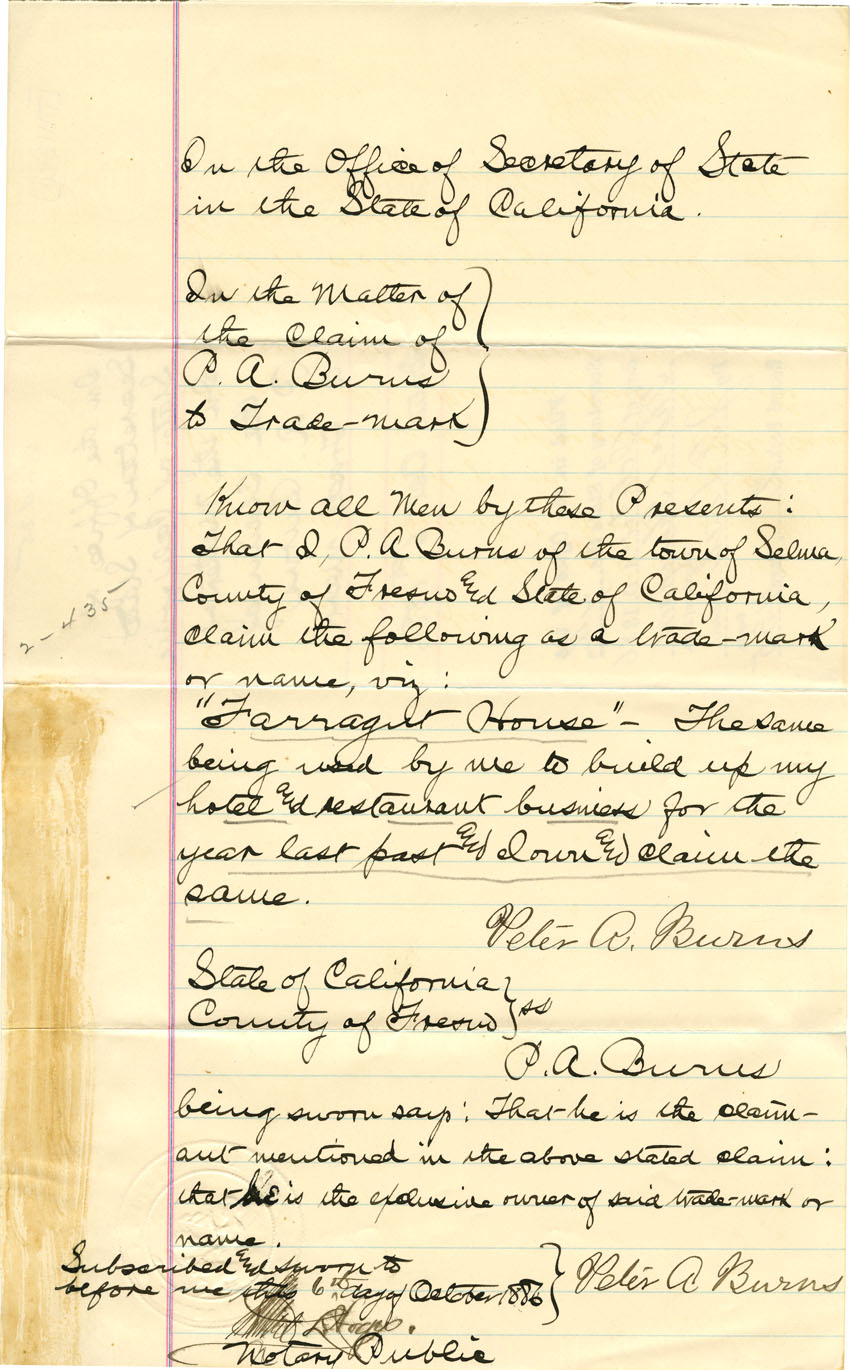 In the Office of Secretary of State
in the State of California.
In the Matter of
the Claim of
P. A. Burns
to Trade-mark
Know all Men by these Presents:
That I, P. A. Burns of the town of Selma,
County of Fresno and State of California,
claim the following as a trade-mark
or name, viz:
"Farragut House" - The same
being used by me to build up my
hotel and restaurant business for the
year last past and I own and claim the
same.
Peter A. Burns
State of California
County of Fresno } ss
P. A. Burns
being sworn says: That he is the claim-
ant mentioned in the above stated claim:
that he is the exclusive owner of said trade-mark or
name.
Subscribed and sworn to
before me this 6th day of October 1886
Peter A Burns
Notary Public
2-435